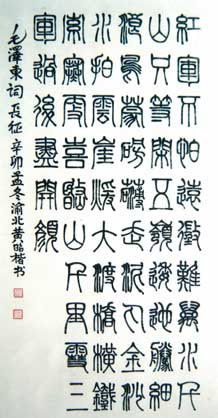 紅軍不怕遠征難萬水千
山只等閑五嶺逶迤騰細
浪烏蒙磅礴走泥丸金沙
水拍雲崖暖大渡橋橫鐵
索寒更喜岷山千里雪三
軍過後盡開顏
毛澤東词長征辛卯孟冬渝北黄昭楷书